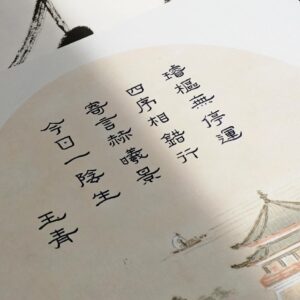 璿樞無停運
四序相錯行
寄言赫曦景
今日一陰生
玉青